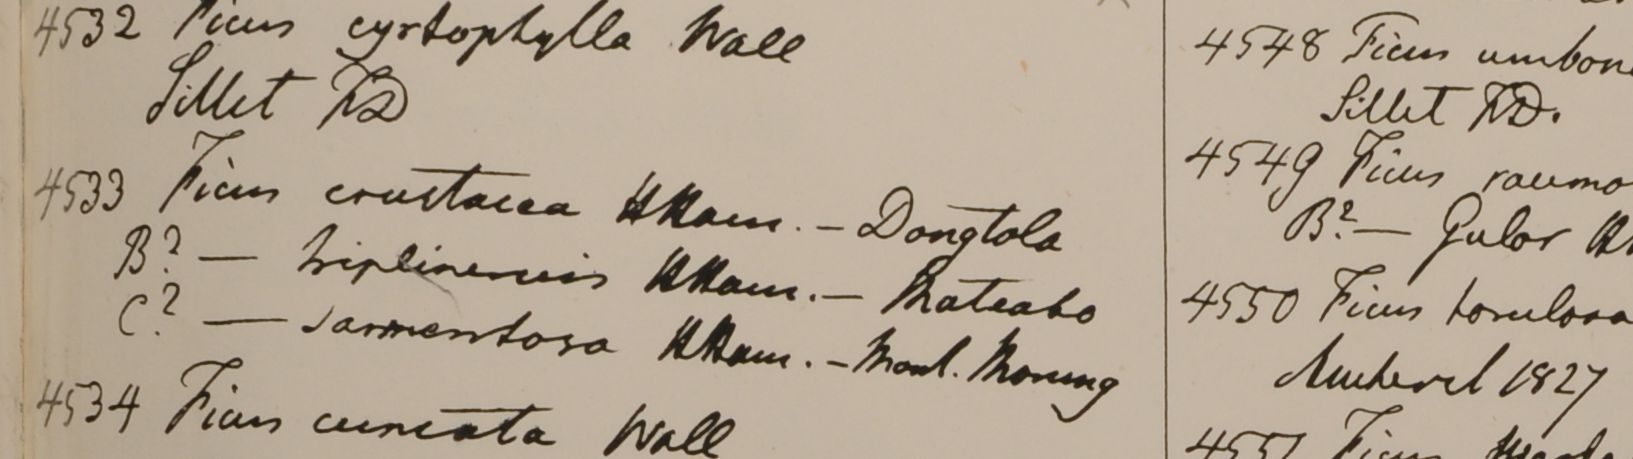 4532 Ficus cyrtophylla Wall
Sillet FD
4533 Ficus crustacea HHam. – Dongtola
B? — triplinervis HHam. –
C? — sarmentosa HHam. –
4534 Ficus cuneata Wall
4548 Ficus umbon
Sillet FD.
4549 Ficus racemo
B? — Gular H
4550 Ficus torulosa
Amherst 1827
4551 Ficus